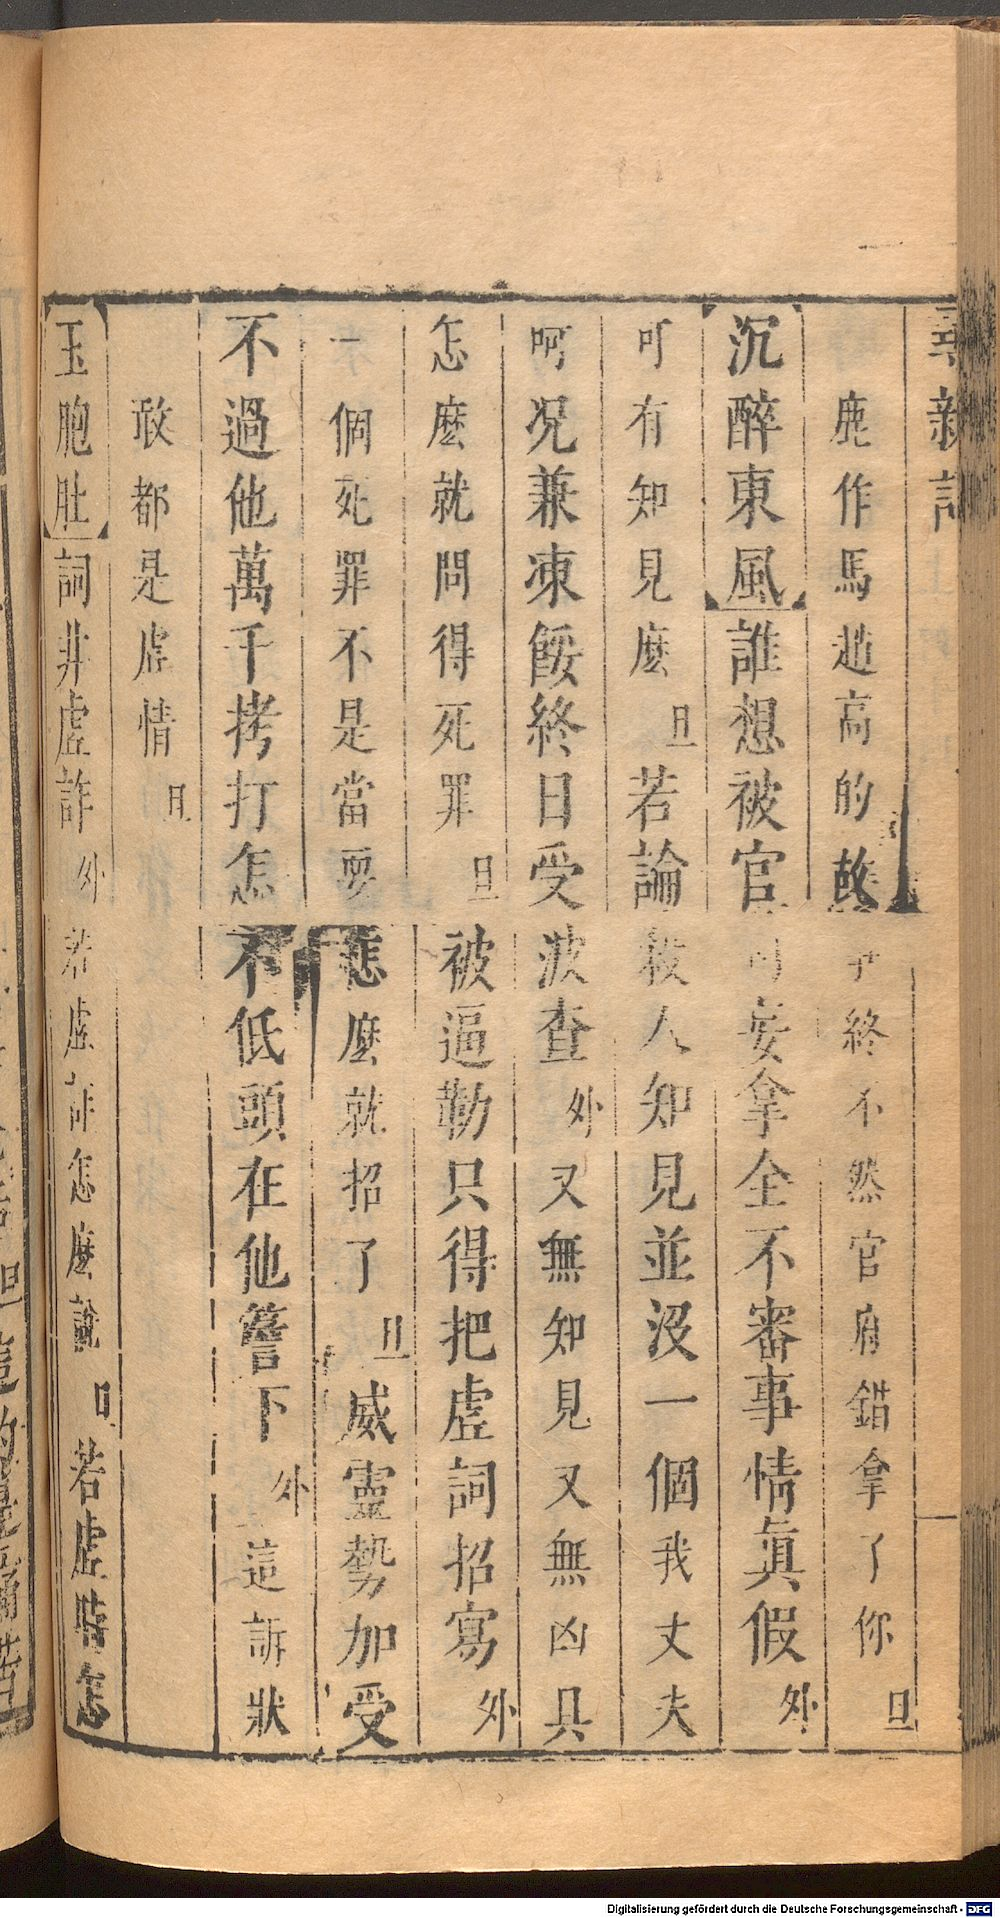 鹿作馬趙高的故子終不然官府錯拿了你 旦
【沉醉東風】誰想被官司妄拿全不審事情眞假 外
可有知見麽 旦 若論殺人知見並沒一個我丈夫
呵況兼凍餒終日受波查 外 又無知見又無凶具
怎麽就問得死罪 旦 被逼勒只得把虛詞招寫 外
一個死罪不是當耍怎麽就招了 旦 威靈勢加受
不過他萬千拷打怎不低頭在他簷下 外 這訴狀
敢都是虛情 旦
【玉胞肚】詞非虛詐 外 若虛詐怎麽說 旦 若虛時怎
Digitalisierung gefördert durch die Deutsche Forschungsgemeinschaft - DFG